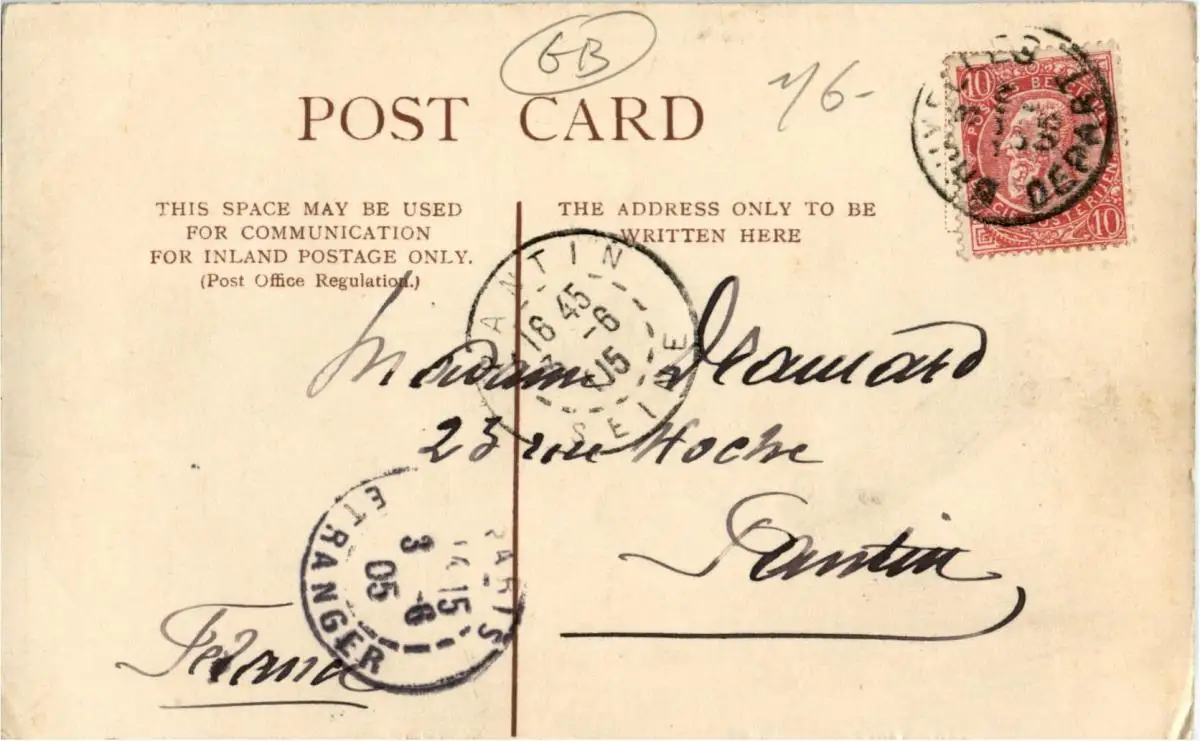 GB
Y6-
POST CARD
THIS SPACE MAY BE USED
FOR COMMUNICATION
FOR INLAND POSTAGE ONLY.
(Post Office Regulation.)
THE ADDRESS ONLY TO BE
WRITTEN HERE
10
10
BRUXELLES
3 JUIN
05
DEPART
PANTIN
16 45
3 -6
05
SEINE
Madame
23 rue Hoche
Pantin
PARIS
14 15
3 -6
05
ETRANGER